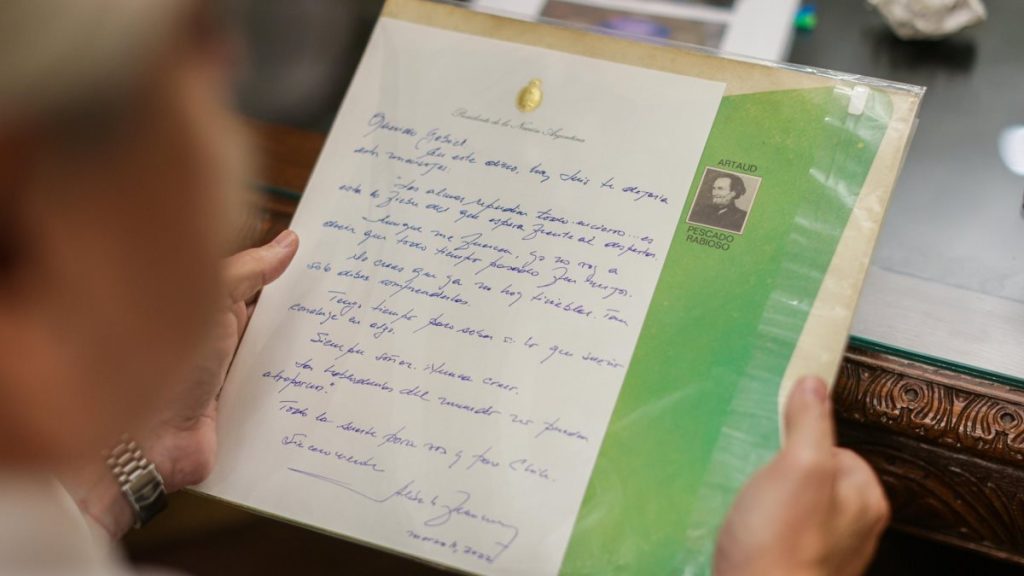 Presidente de la Nación Argentina
Querido Gabriel
En este disco, hoy Luis te dejaría
este mensaje:
"Las almas repudian todo encierro... es
esta la
que espera frente al despertar
Aunque me fuercen, yo no voy a
decir que todo tiempo pasado fue mejor.
No crees que ya no hay tinieblas. Tan
solo debes comprenderla.
Tengo tiempo para saber si lo que sueño
concluye en algo.
Siempre soñar. Nunca creer.
Las habladurías del mundo no pueden
atraparnos"
Toda la suerte para vos y para Chile.
Sinceramente
Alberto Fernández
marzo, 2022
ARTAUD
PESCADO
RABIOSO